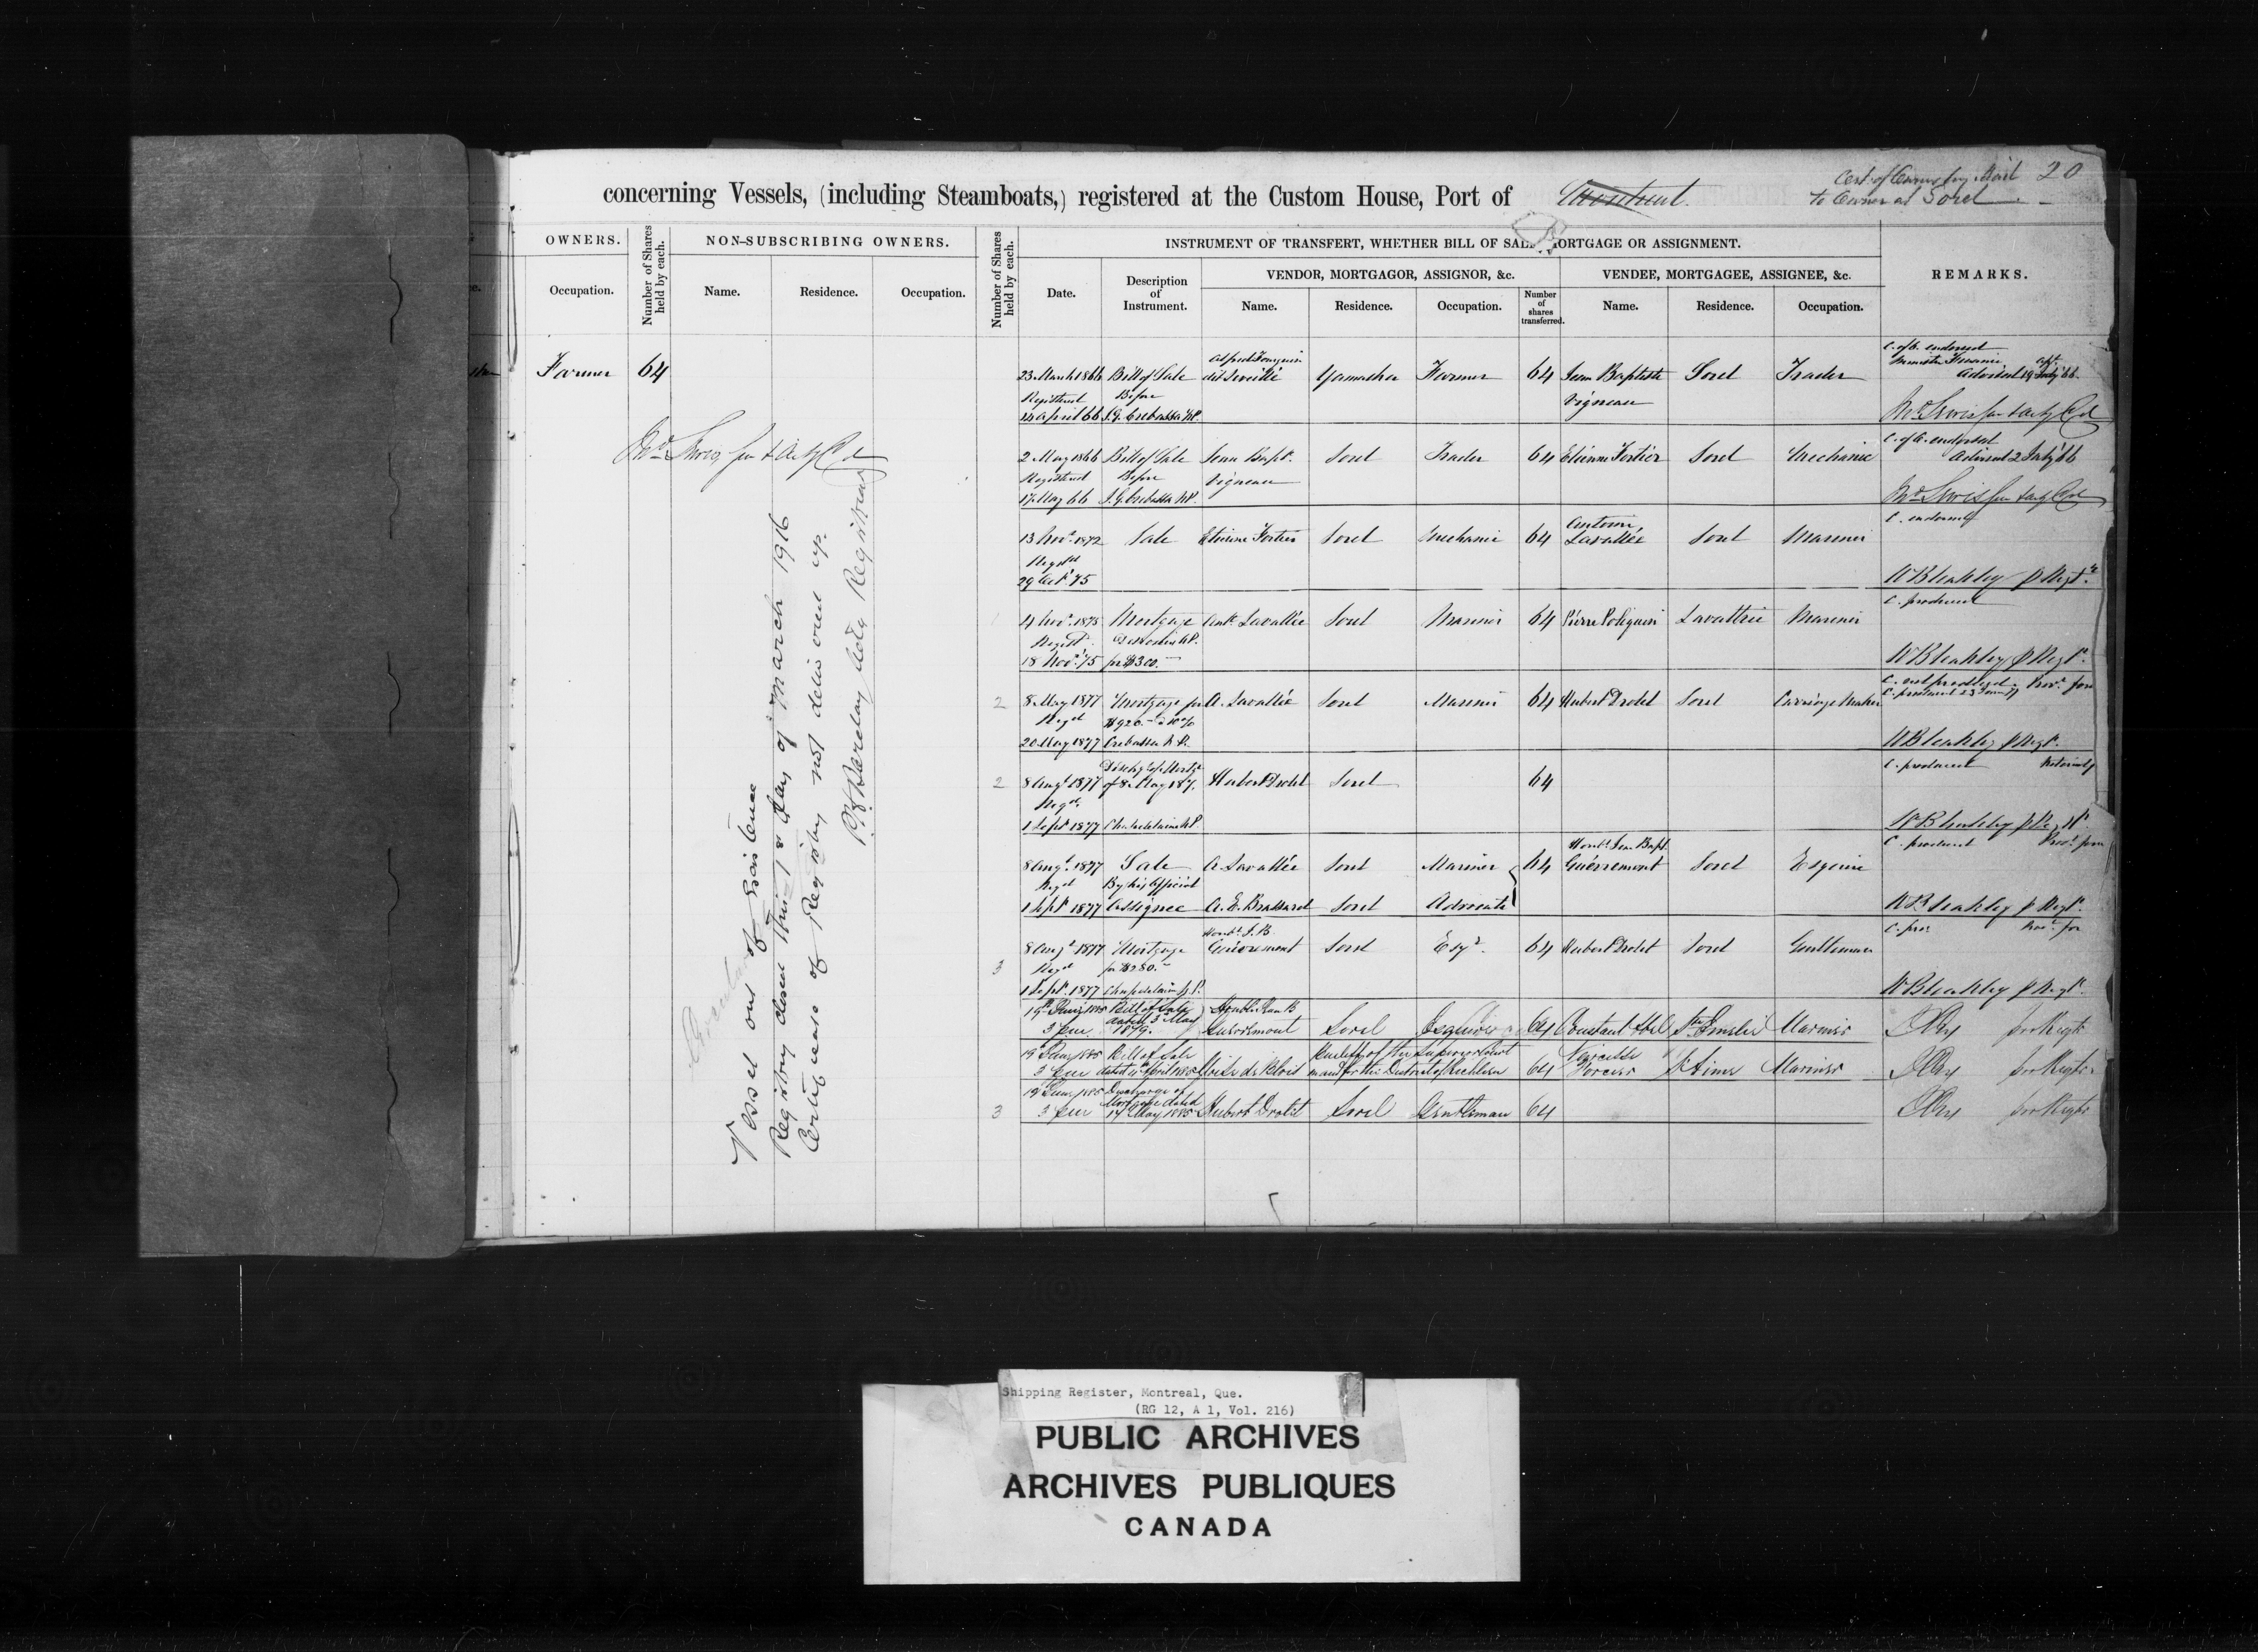 Cert. of Owners by Mail 20
to Owner at Sorel
concerning Vessels, (including Steamboats,) registered at the Custom House, Port of Montreal
OWNERS.
Occupation.
Number of Shares held by each.
NON-SUBSCRIBING OWNERS.
Name. Residence. Occupation.
Number of Shares held by each.
INSTRUMENT OF TRANSFERT, WHETHER BILL OF SALE, MORTGAGE OR ASSIGNMENT.
Date.
Description of Instrument.
VENDOR, MORTGAGOR, ASSIGNOR, &c.
Name. Residence. Occupation.
Number of shares transferred.
VENDEE, MORTGAGEE, ASSIGNEE, &c.
Name. Residence. Occupation.
REMARKS.
Farmer 64
Vessel out of Existence
Registry closed this 1st day of March 1916
Certificate of Registry not delivered up.
Registrar
23 March 1866 Bill of Sale Yamaska Farmer 64 Jean Baptiste Sorel Trader
Registered Before Vigneau
24 April 66 J. G. Crebassa N.P.
C. of O. endorsed
2 May 1866 Bill of Sale Jean Bapt. Sorel Trader 64 Etienne Fortier Sorel Mechanic
Registered Before Vigneau
17 May 66 J. G. Crebassa N.P.
C. of O. endorsed
Advised 2 July 66
13 Nov. 1872 Sale Etienne Fortier Sorel Mechanic 64 Antoine Lavallée Sorel Mariner
Regd
29 Oct. 75
W Bleakley p Regr.
4 Nov. 1875 Mortgage Ant. Lavallée Sorel Mariner 64 Pierre Poliquin Lavaltrie Mariner
Regd.
18 Nov. 75 for $300.—
C. produced
W Bleakley p Regr.
2 8 May 1877 Mortgage for A. Lavallée Sorel Mariner 64 Hubert Drolet Sorel Carriage Maker
Regd $920.— 10%
20 May 1877 Crebassa N.P.
W Bleakley p Regr.
2 8 Augt 1877 Discharge of Mortge of 8 May 1877 Hubert Drolet Sorel 64
Regd
1 Sept 1877 Chapdelaine N.P.
C. produced
W Bleakley p Regr.
8 Augt. 1877 Sale A. Lavallée Sorel Mariner 64 Honble Jean Bapt. Guévremont Sorel Esquire
Regd By his Official
1 Sept 1877 Assignee A. E. Brassard Sorel Advocate
C. produced
W Bleakley p Regr.
3 8 Augt 1877 Mortgage Honble J. B. Guévremont Sorel Esqr. 64 Hubert Drolet Sorel Gentleman
Regd for $280.—
1 Sept. 1877 Chapdelaine N.P.
W Bleakley p Regr.
19 June 1885 Bill of Sale Honble Jean B
3 p.m. dated 3 May 1879. Guévremont Sorel Esquire 64 Constant Abel Ste Emelie Mariner
pro Registr
19 June 1885 Bill of Sale Bailiff of the Superior Court
3 p.m. dated 11 April 1885 in and for the District of Richelieu 64 Narcisse St Aimé Mariner
pro Registr
3 19 June 1885 Discharge of
3 p.m. Mortgage dated 14 May 1885 Hubert Drolet Sorel Gentleman 64
pro Registr
Shipping Register, Montreal, Que.
(RG 12, A 1, Vol. 216)
PUBLIC ARCHIVES
ARCHIVES PUBLIQUES
CANADA